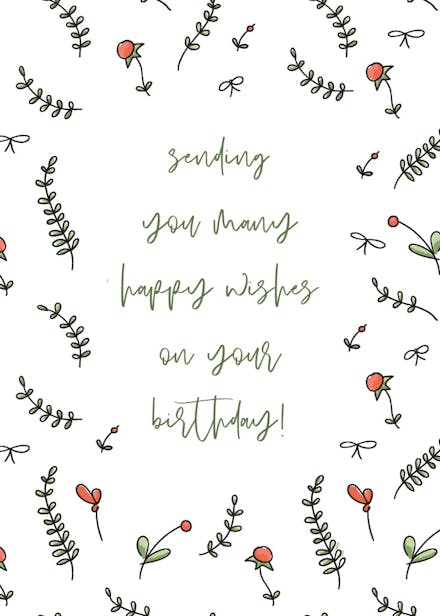 sending
you many
happy wishes
on your
birthday!